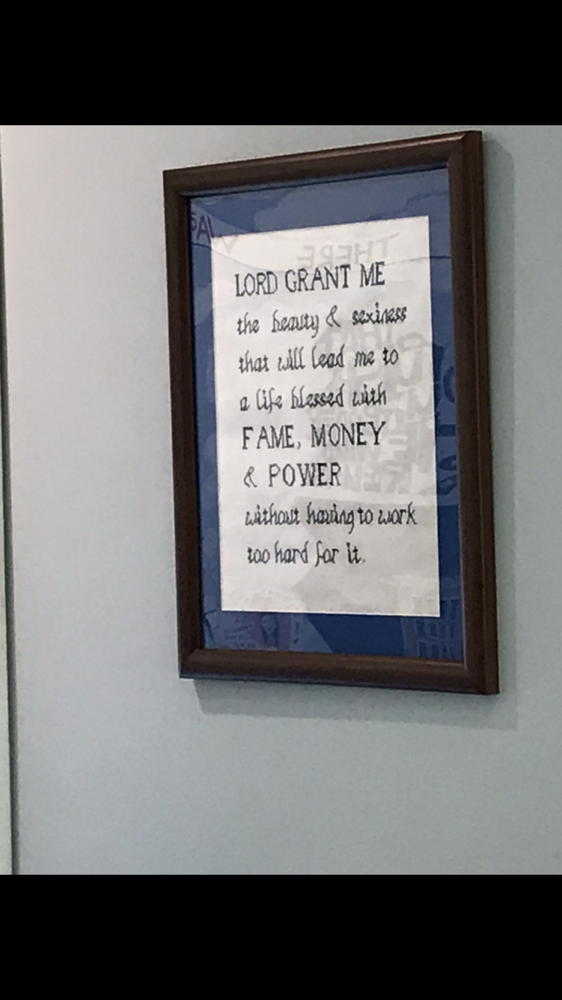 LORD GRANT ME
the beauty & sexiness
that will lead me to
a life blessed with
FAME, MONEY
& POWER
without having to work
too hard for it.
THERE